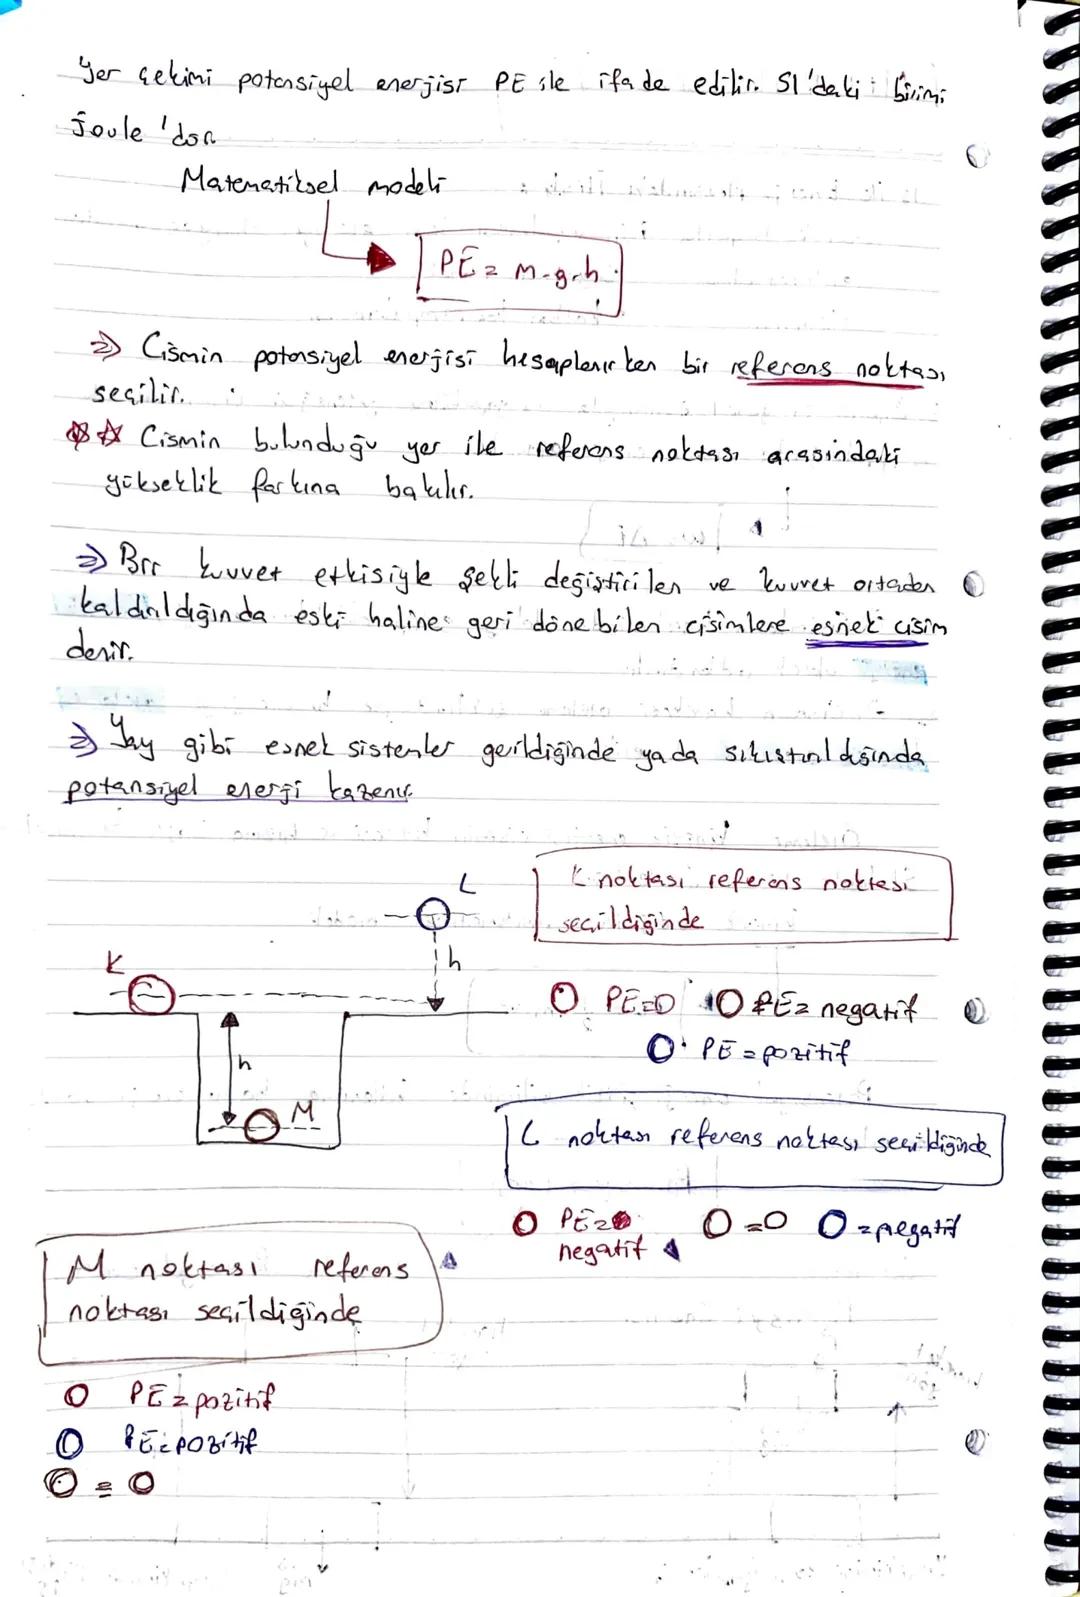 Yer çekimi potansiyel enerjisi PE ile ifade edilir. SI'daki birimi
Joule 'dür
Matematiksel modeli
PE = m.g.h
⇒ Cismin potansiyel enerjisi hesaplanırken bir referans noktası
seçilir.
☆☆ Cismin bulunduğu yer ile referans noktası arasındaki
yükseklik farkına bakılır.
⇒ Bir kuvvet etkisiyle şekli değiştirilen ve kuvvet ortadan
kaldırıldığında eski haline geri dönebilen cisimlere esnek cisim
denir.
⇒ Yay gibi esnek sistemler gerildiğinde yada sıkıştırıldığında
potansiyel enerji kazanır.
K noktası referans noktası
seçildiğinde
L
h
K
O PE=0 O PE= negatif
O PE = pozitif
h
M
L noktası referans noktası seçildiğinde
O PE=
negatif
O =0 O = negatif
M noktası referans
noktası seçildiğinde
O PE = pozitif
O PE = pozitif
O = 0